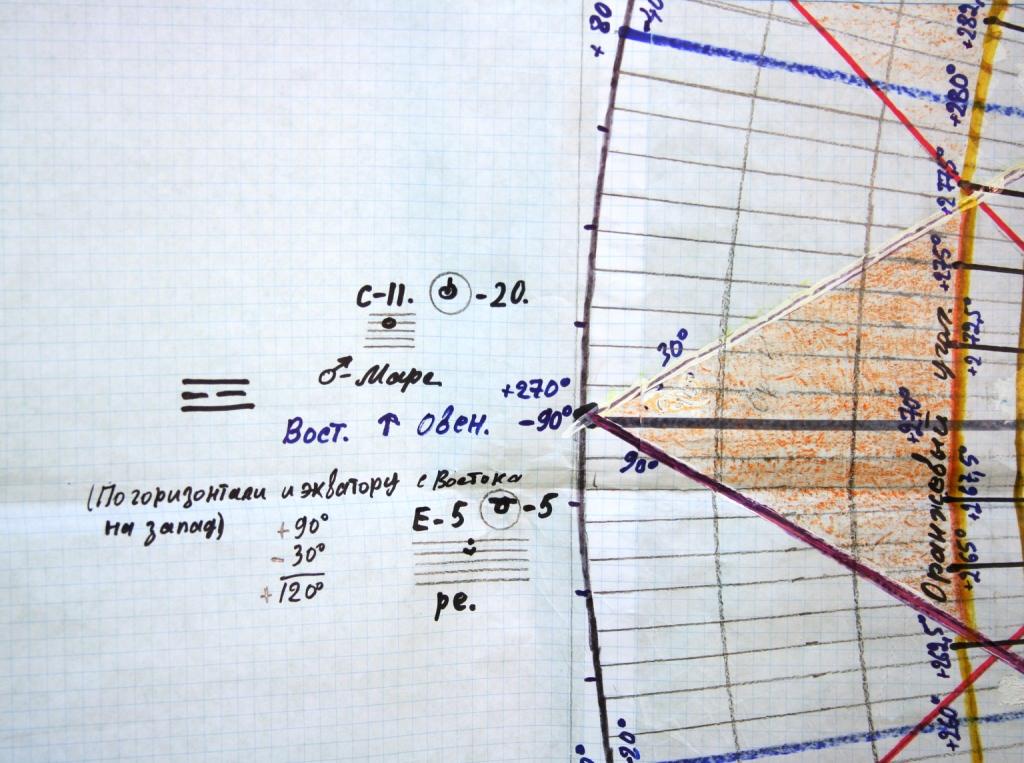 С-11. -20.
♂-Марс
Вост. ↑ Овен.
+270°
-90°
(По горизонтали и экватору с Востока
на запад)
+90°
- 30°
+120°
Е-5 -5
ре.
+80
-40
30°
90°
+282,
+280°
+277,5°
+275°
+272,5°
+270°
+267,5°
+265°
+262,5°
+260°
Оранжевый угол.
-20°